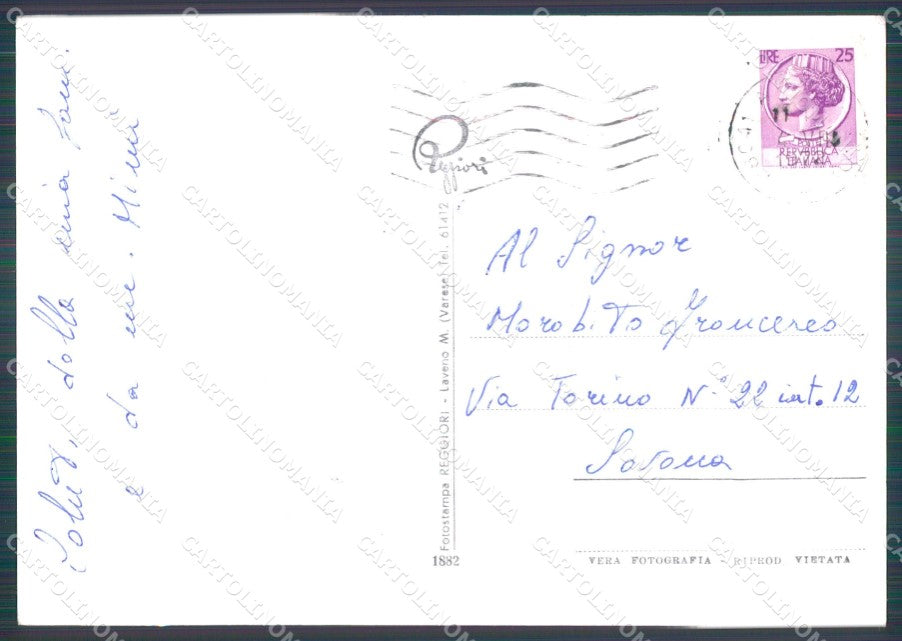 Saluti dalla mia fam.
e da me. Mimì
Reggiori
LIRE 25
POSTE
REPVBBLICA
ITALIANA
Al Signor
Morabito Francesco
Via Torino N° 22 int. 12
Savona
Fotostampa REGGIORI - Laveno M. (Varese) Tel. 61412
1882
VERA FOTOGRAFIA - RIPROD. VIETATA
CARTOLINOMANIA